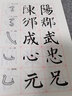 陽郡武忠兄
陳成心元